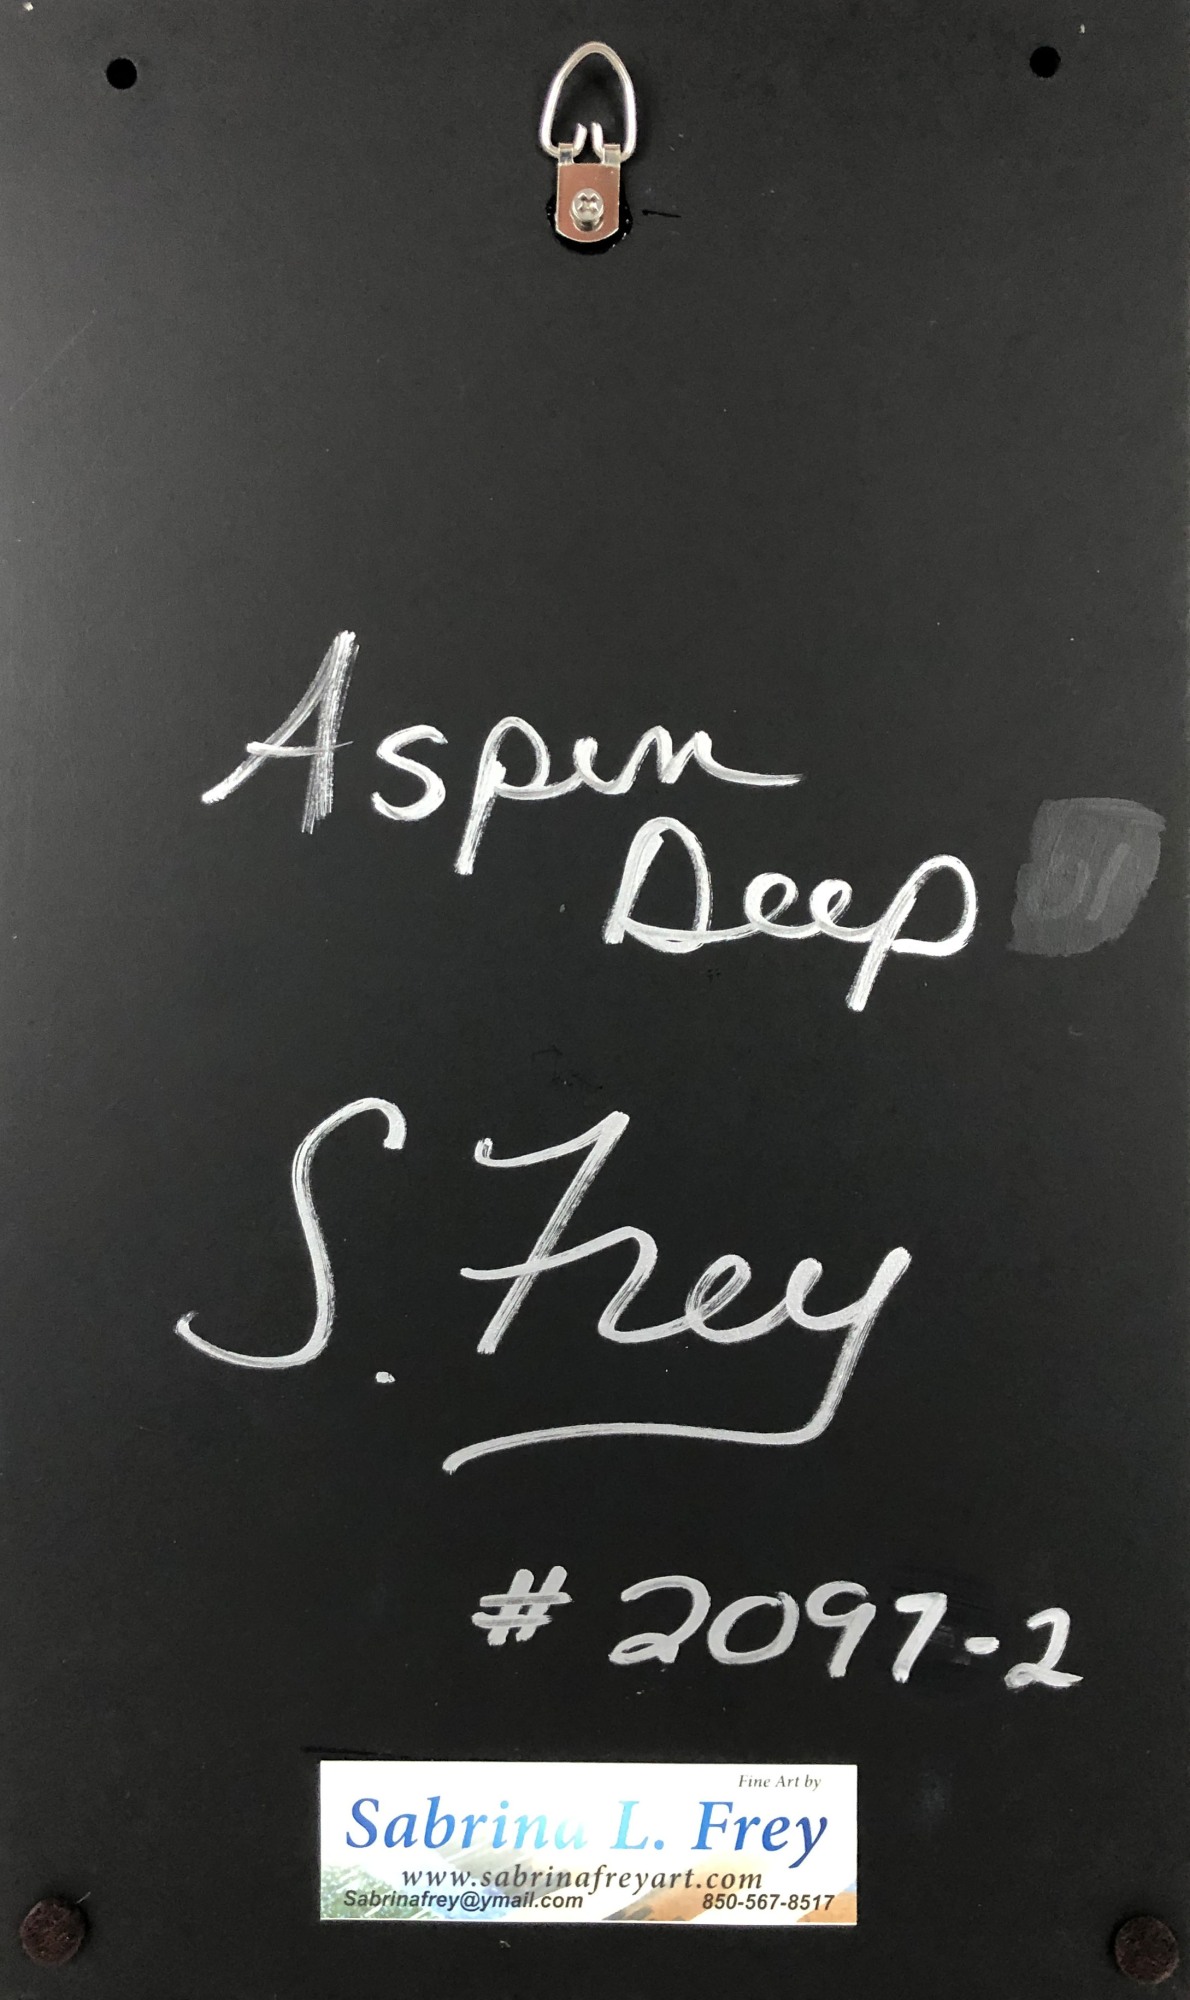 Aspen
Deep
S. Frey
# 2097-2
Fine Art by
Sabrina L. Frey
www.sabrinafreyart.com
Sabrinafrey@ymail.com 850-567-8517